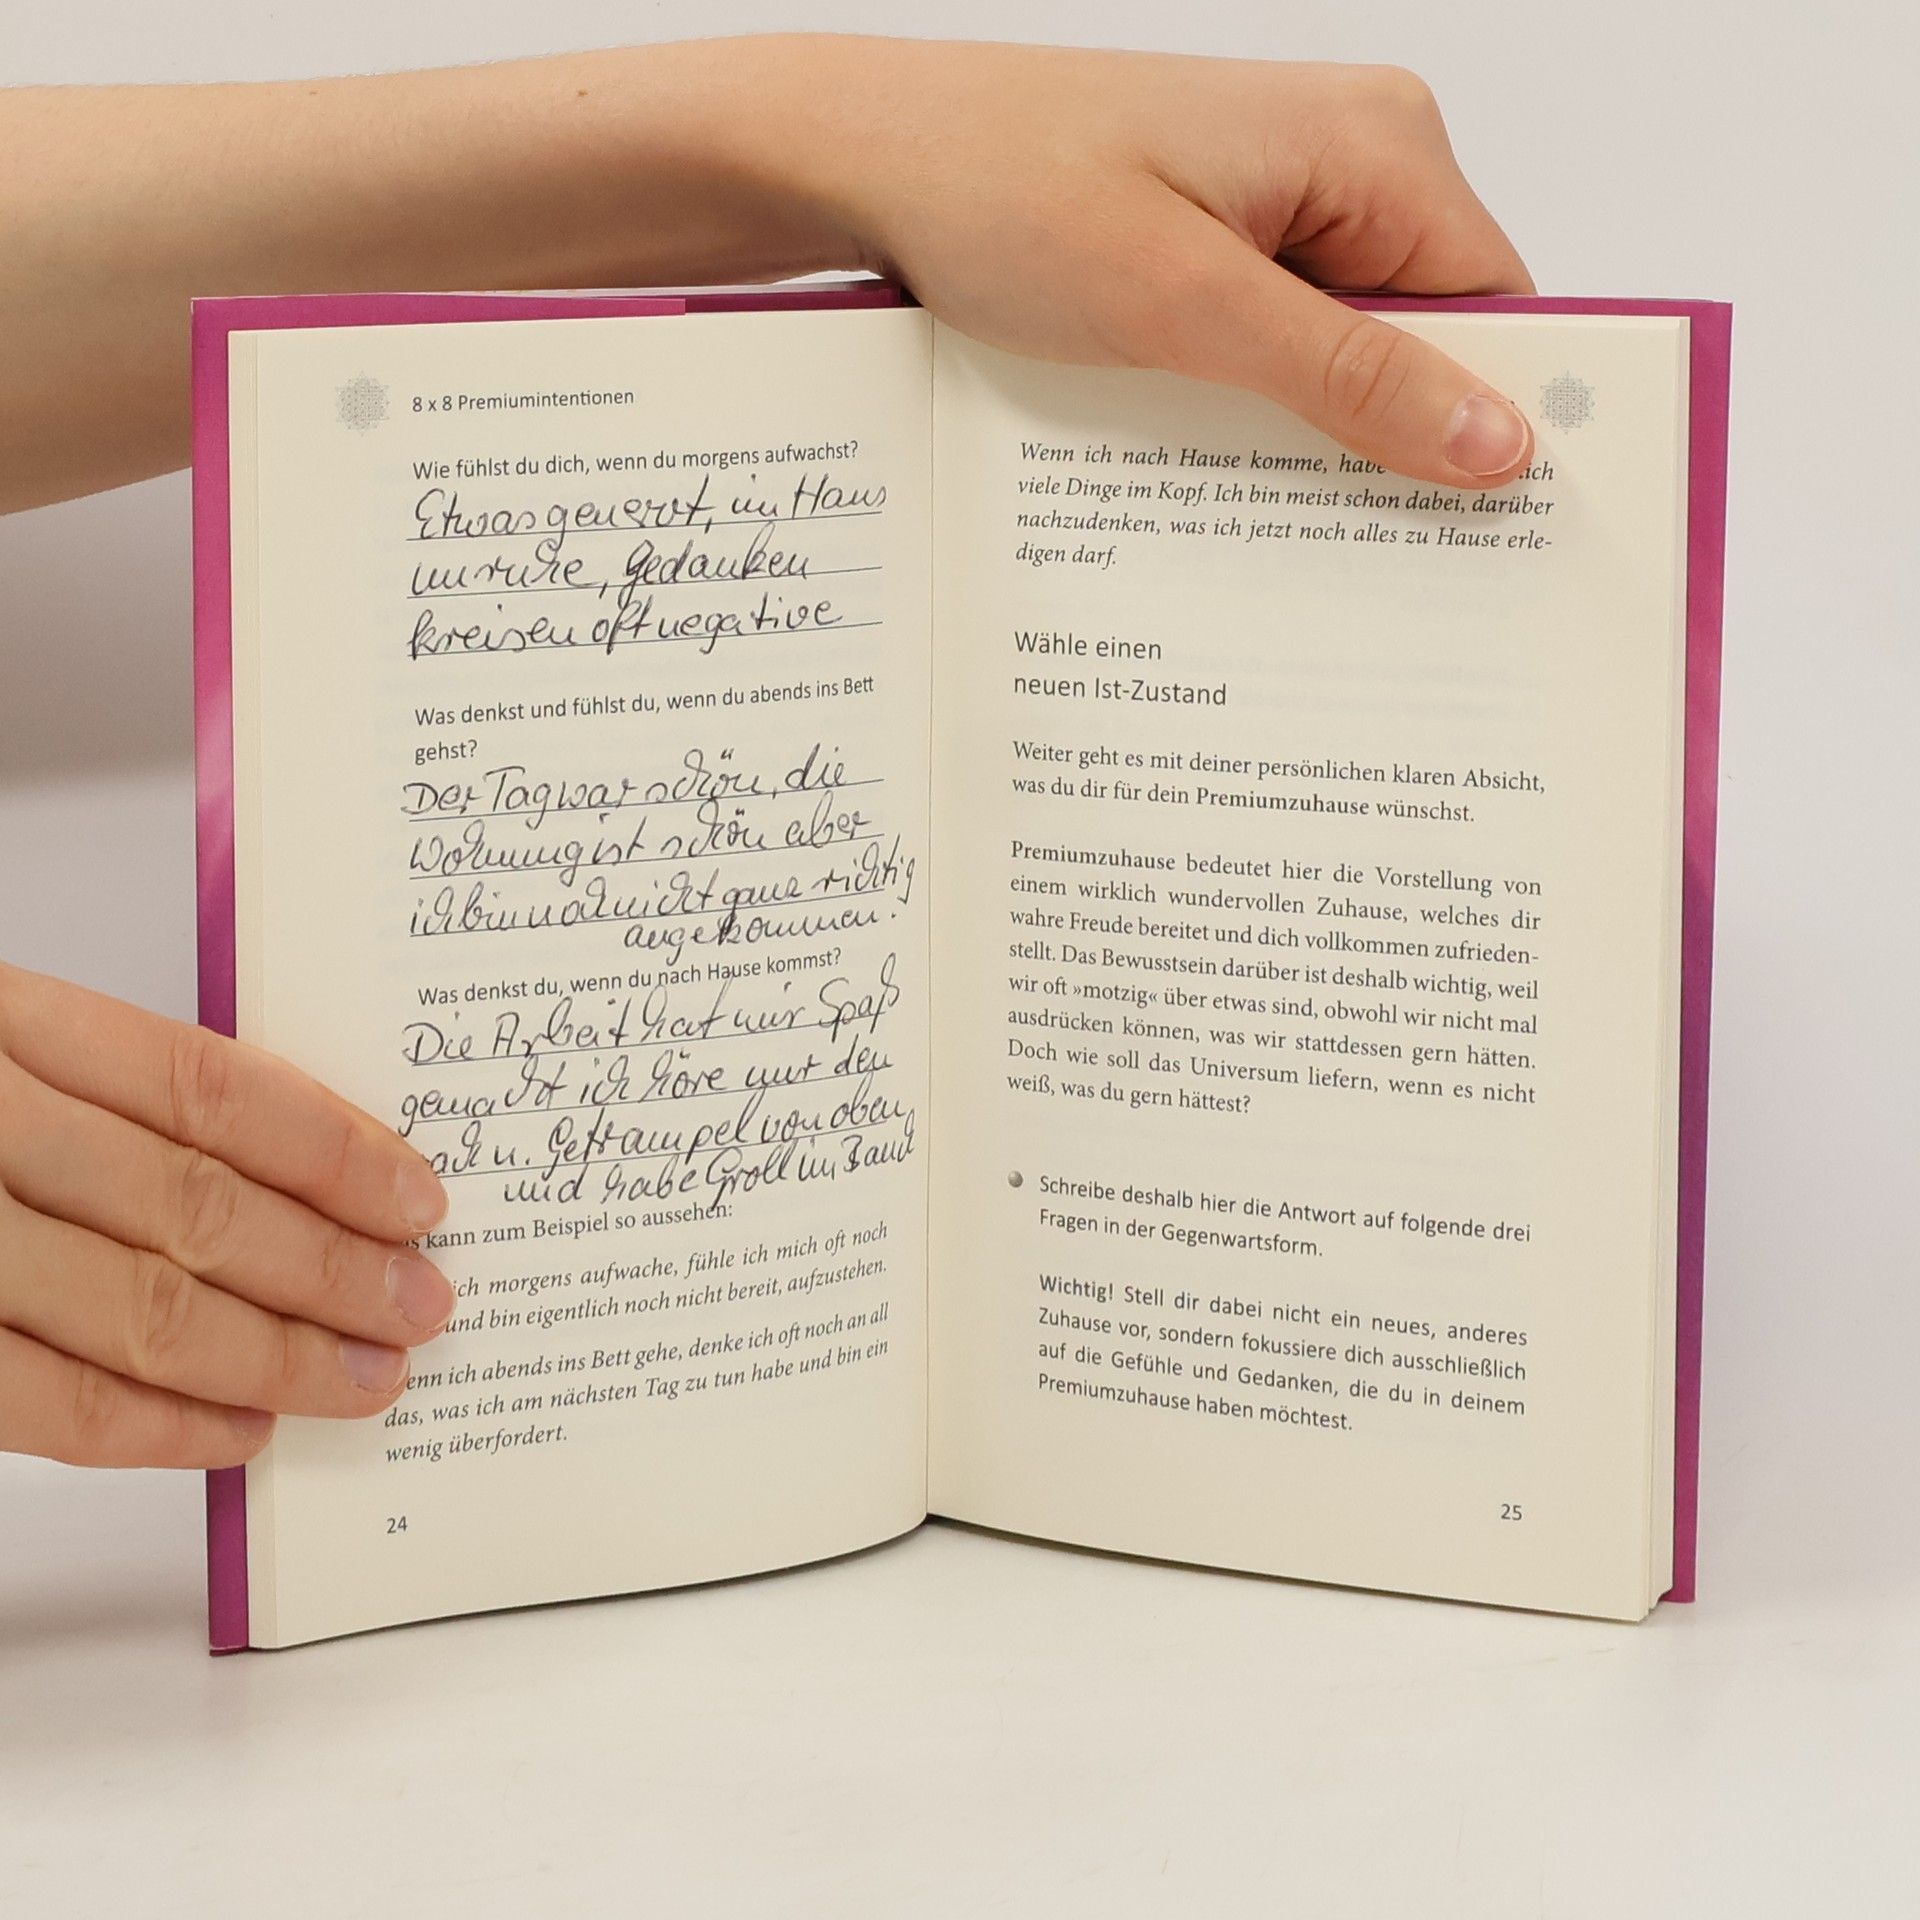 8 x 8 Premiumintentionen
Wie fühlst du dich, wenn du morgens aufwachst?
Etwas genervt, im Haus
unruhe, Gedanken
kreisen oft negative
Was denkst und fühlst du, wenn du abends ins Bett
gehst?
Der Tag war schön, die
Wohnung ist schön aber
ich bin noch nicht ganz richtig
angekommen!
Was denkst du, wenn du nach Hause kommst?
Die Arbeit hat mir Spaß
gemacht ich höre nur den
u. Getrampel von oben
und habe Groll im Bauch
kann zum Beispiel so aussehen:
ich morgens aufwache, fühle ich mich oft noch
und bin eigentlich noch nicht bereit, aufzustehen.
enn ich abends ins Bett gehe, denke ich oft noch an all
das, was ich am nächsten Tag zu tun habe und bin ein
wenig überfordert.
24
Wenn ich nach Hause komme, habe
viele Dinge im Kopf. Ich bin meist schon dabei, darüber
nachzudenken, was ich jetzt noch alles zu Hause erle-
digen darf.
Wähle einen
neuen Ist-Zustand
Weiter geht es mit deiner persönlichen klaren Absicht,
was du dir für dein Premiumzuhause wünschst.
Premiumzuhause bedeutet hier die Vorstellung von
einem wirklich wundervollen Zuhause, welches dir
wahre Freude bereitet und dich vollkommen zufrieden-
stellt. Das Bewusstsein darüber ist deshalb wichtig, weil
wir oft »motzig« über etwas sind, obwohl wir nicht mal
ausdrücken können, was wir stattdessen gern hätten.
Doch wie soll das Universum liefern, wenn es nicht
weiß, was du gern hättest?
Schreibe deshalb hier die Antwort auf folgende drei
Fragen in der Gegenwartsform.
Wichtig! Stell dir dabei nicht ein neues, anderes
Zuhause vor, sondern fokussiere dich ausschließlich
auf die Gefühle und Gedanken, die du in deinem
Premiumzuhause haben möchtest.
25